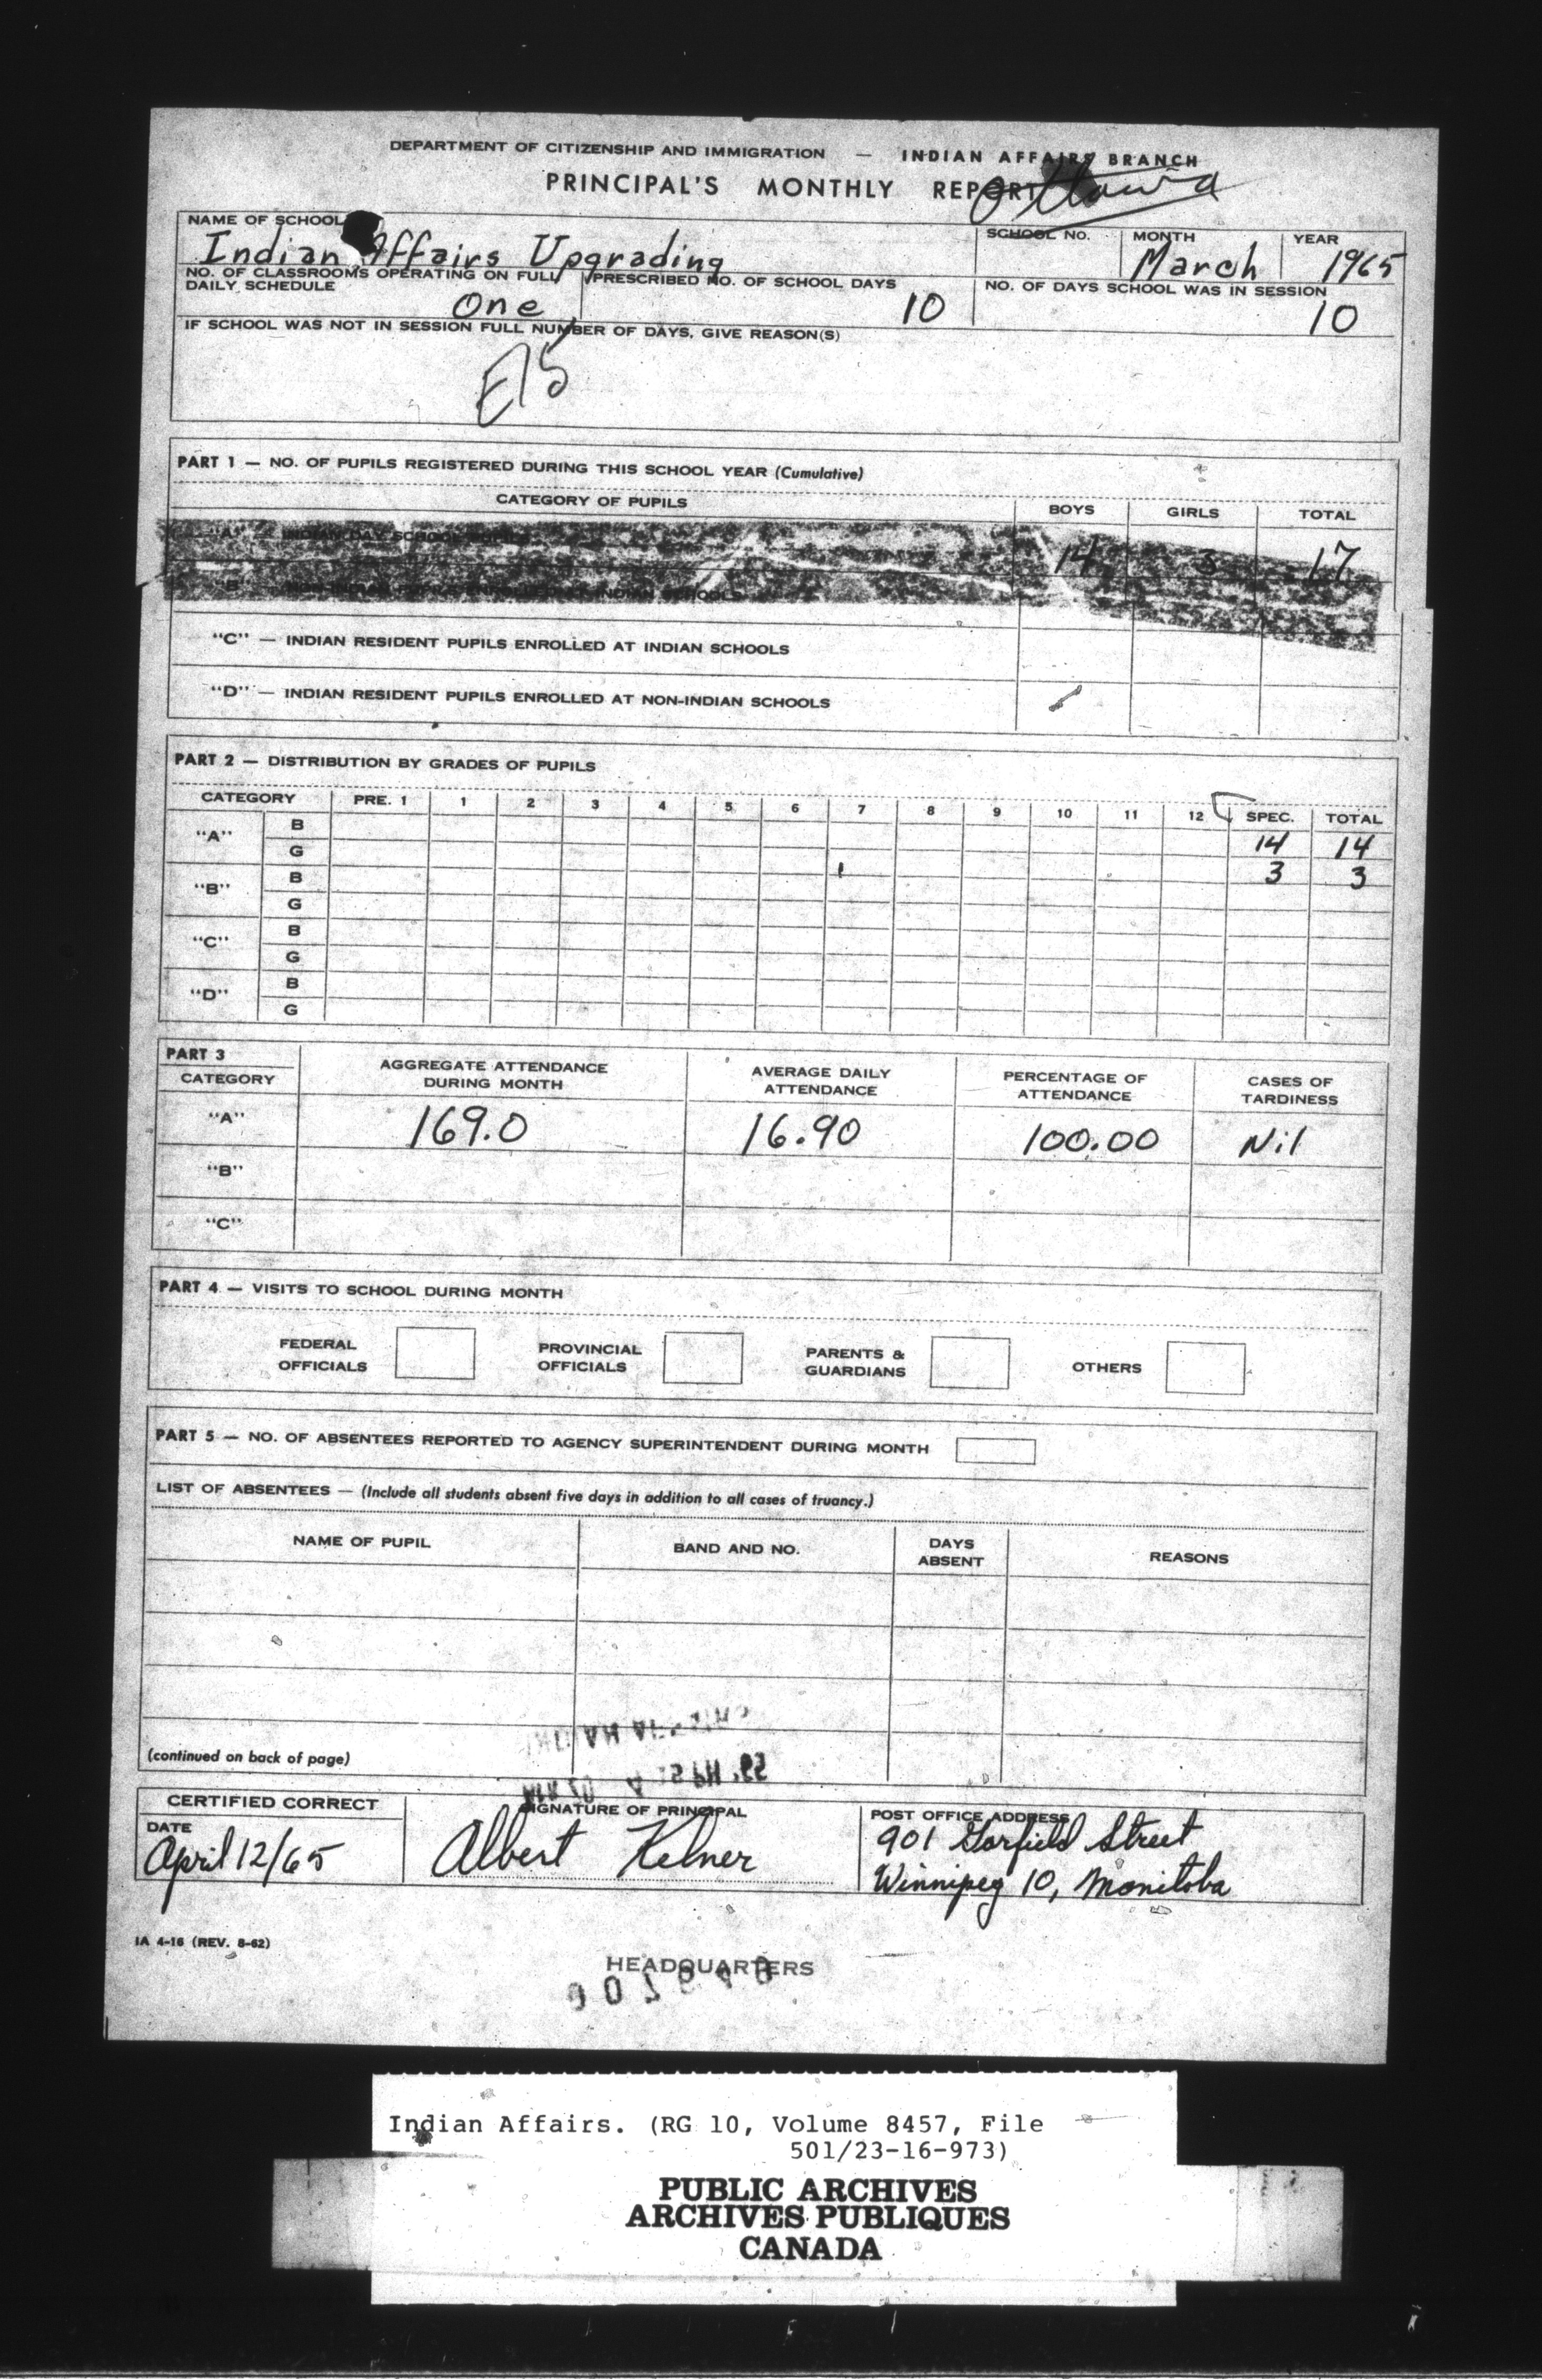 DEPARTMENT OF CITIZENSHIP AND IMMIGRATION — INDIAN AFFAIRS BRANCH
PRINCIPAL'S MONTHLY REPORT
Ottawa
NAME OF SCHOOL SCHOOL NO. MONTH YEAR
Indian Affairs Upgrading March 1965
NO. OF CLASSROOMS OPERATING ON FULL DAILY SCHEDULE One
PRESCRIBED NO. OF SCHOOL DAYS 10
NO. OF DAYS SCHOOL WAS IN SESSION 10
IF SCHOOL WAS NOT IN SESSION FULL NUMBER OF DAYS, GIVE REASON(S)
E15
PART 1 — NO. OF PUPILS REGISTERED DURING THIS SCHOOL YEAR (Cumulative)
CATEGORY OF PUPILS BOYS GIRLS TOTAL
"A" — INDIAN DAY SCHOOL PUPILS 14 3 17
"B" — NON-INDIAN PUPILS ENROLLED AT INDIAN SCHOOLS
"C" — INDIAN RESIDENT PUPILS ENROLLED AT INDIAN SCHOOLS
"D" — INDIAN RESIDENT PUPILS ENROLLED AT NON-INDIAN SCHOOLS
PART 2 — DISTRIBUTION BY GRADES OF PUPILS
CATEGORY PRE. 1 1 2 3 4 5 6 7 8 9 10 11 12 SPEC. TOTAL
"A" B 14 14
G 3 3
"B" B
G
"C" B
G
"D" B
G
PART 3
CATEGORY AGGREGATE ATTENDANCE DURING MONTH AVERAGE DAILY ATTENDANCE PERCENTAGE OF ATTENDANCE CASES OF TARDINESS
"A" 169.0 16.90 100.00 Nil
"B"
"C"
PART 4 — VISITS TO SCHOOL DURING MONTH
FEDERAL OFFICIALS PROVINCIAL OFFICIALS PARENTS & GUARDIANS OTHERS
PART 5 — NO. OF ABSENTEES REPORTED TO AGENCY SUPERINTENDENT DURING MONTH
LIST OF ABSENTEES — (Include all students absent five days in addition to all cases of truancy.)
NAME OF PUPIL BAND AND NO. DAYS ABSENT REASONS
(continued on back of page)
CERTIFIED CORRECT
DATE SIGNATURE OF PRINCIPAL POST OFFICE ADDRESS
April 12/65 Albert Kelner 901 Garfield Street
Winnipeg 10, Manitoba
IA 4-16 (REV. 8-62)
HEADQUARTERS
Indian Affairs. (RG 10, Volume 8457, File
501/23-16-973)
PUBLIC ARCHIVES
ARCHIVES PUBLIQUES
CANADA